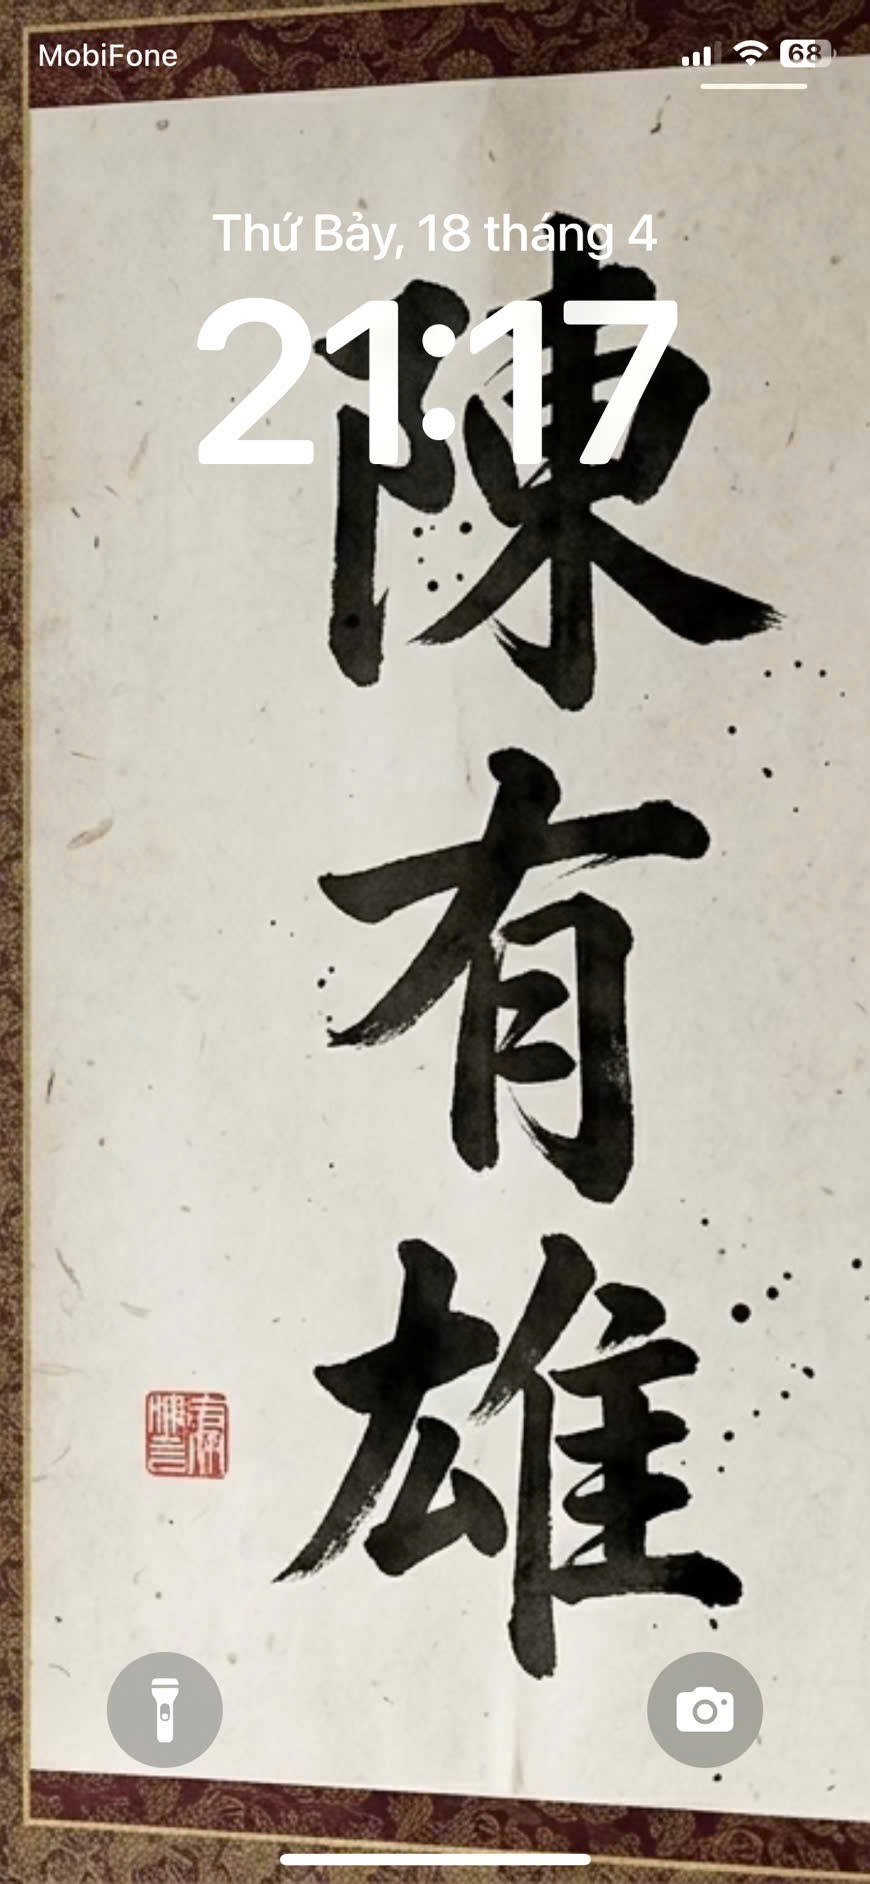 MobiFone
68
Thứ Bảy, 18 tháng 4
21:17
陳
有
雄